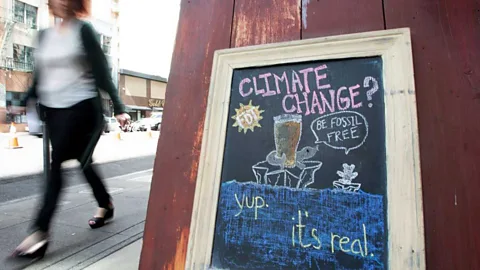 CLIMATE
CHANGE?
FDR
BE FOSSIL
FREE
yup.
it's real.